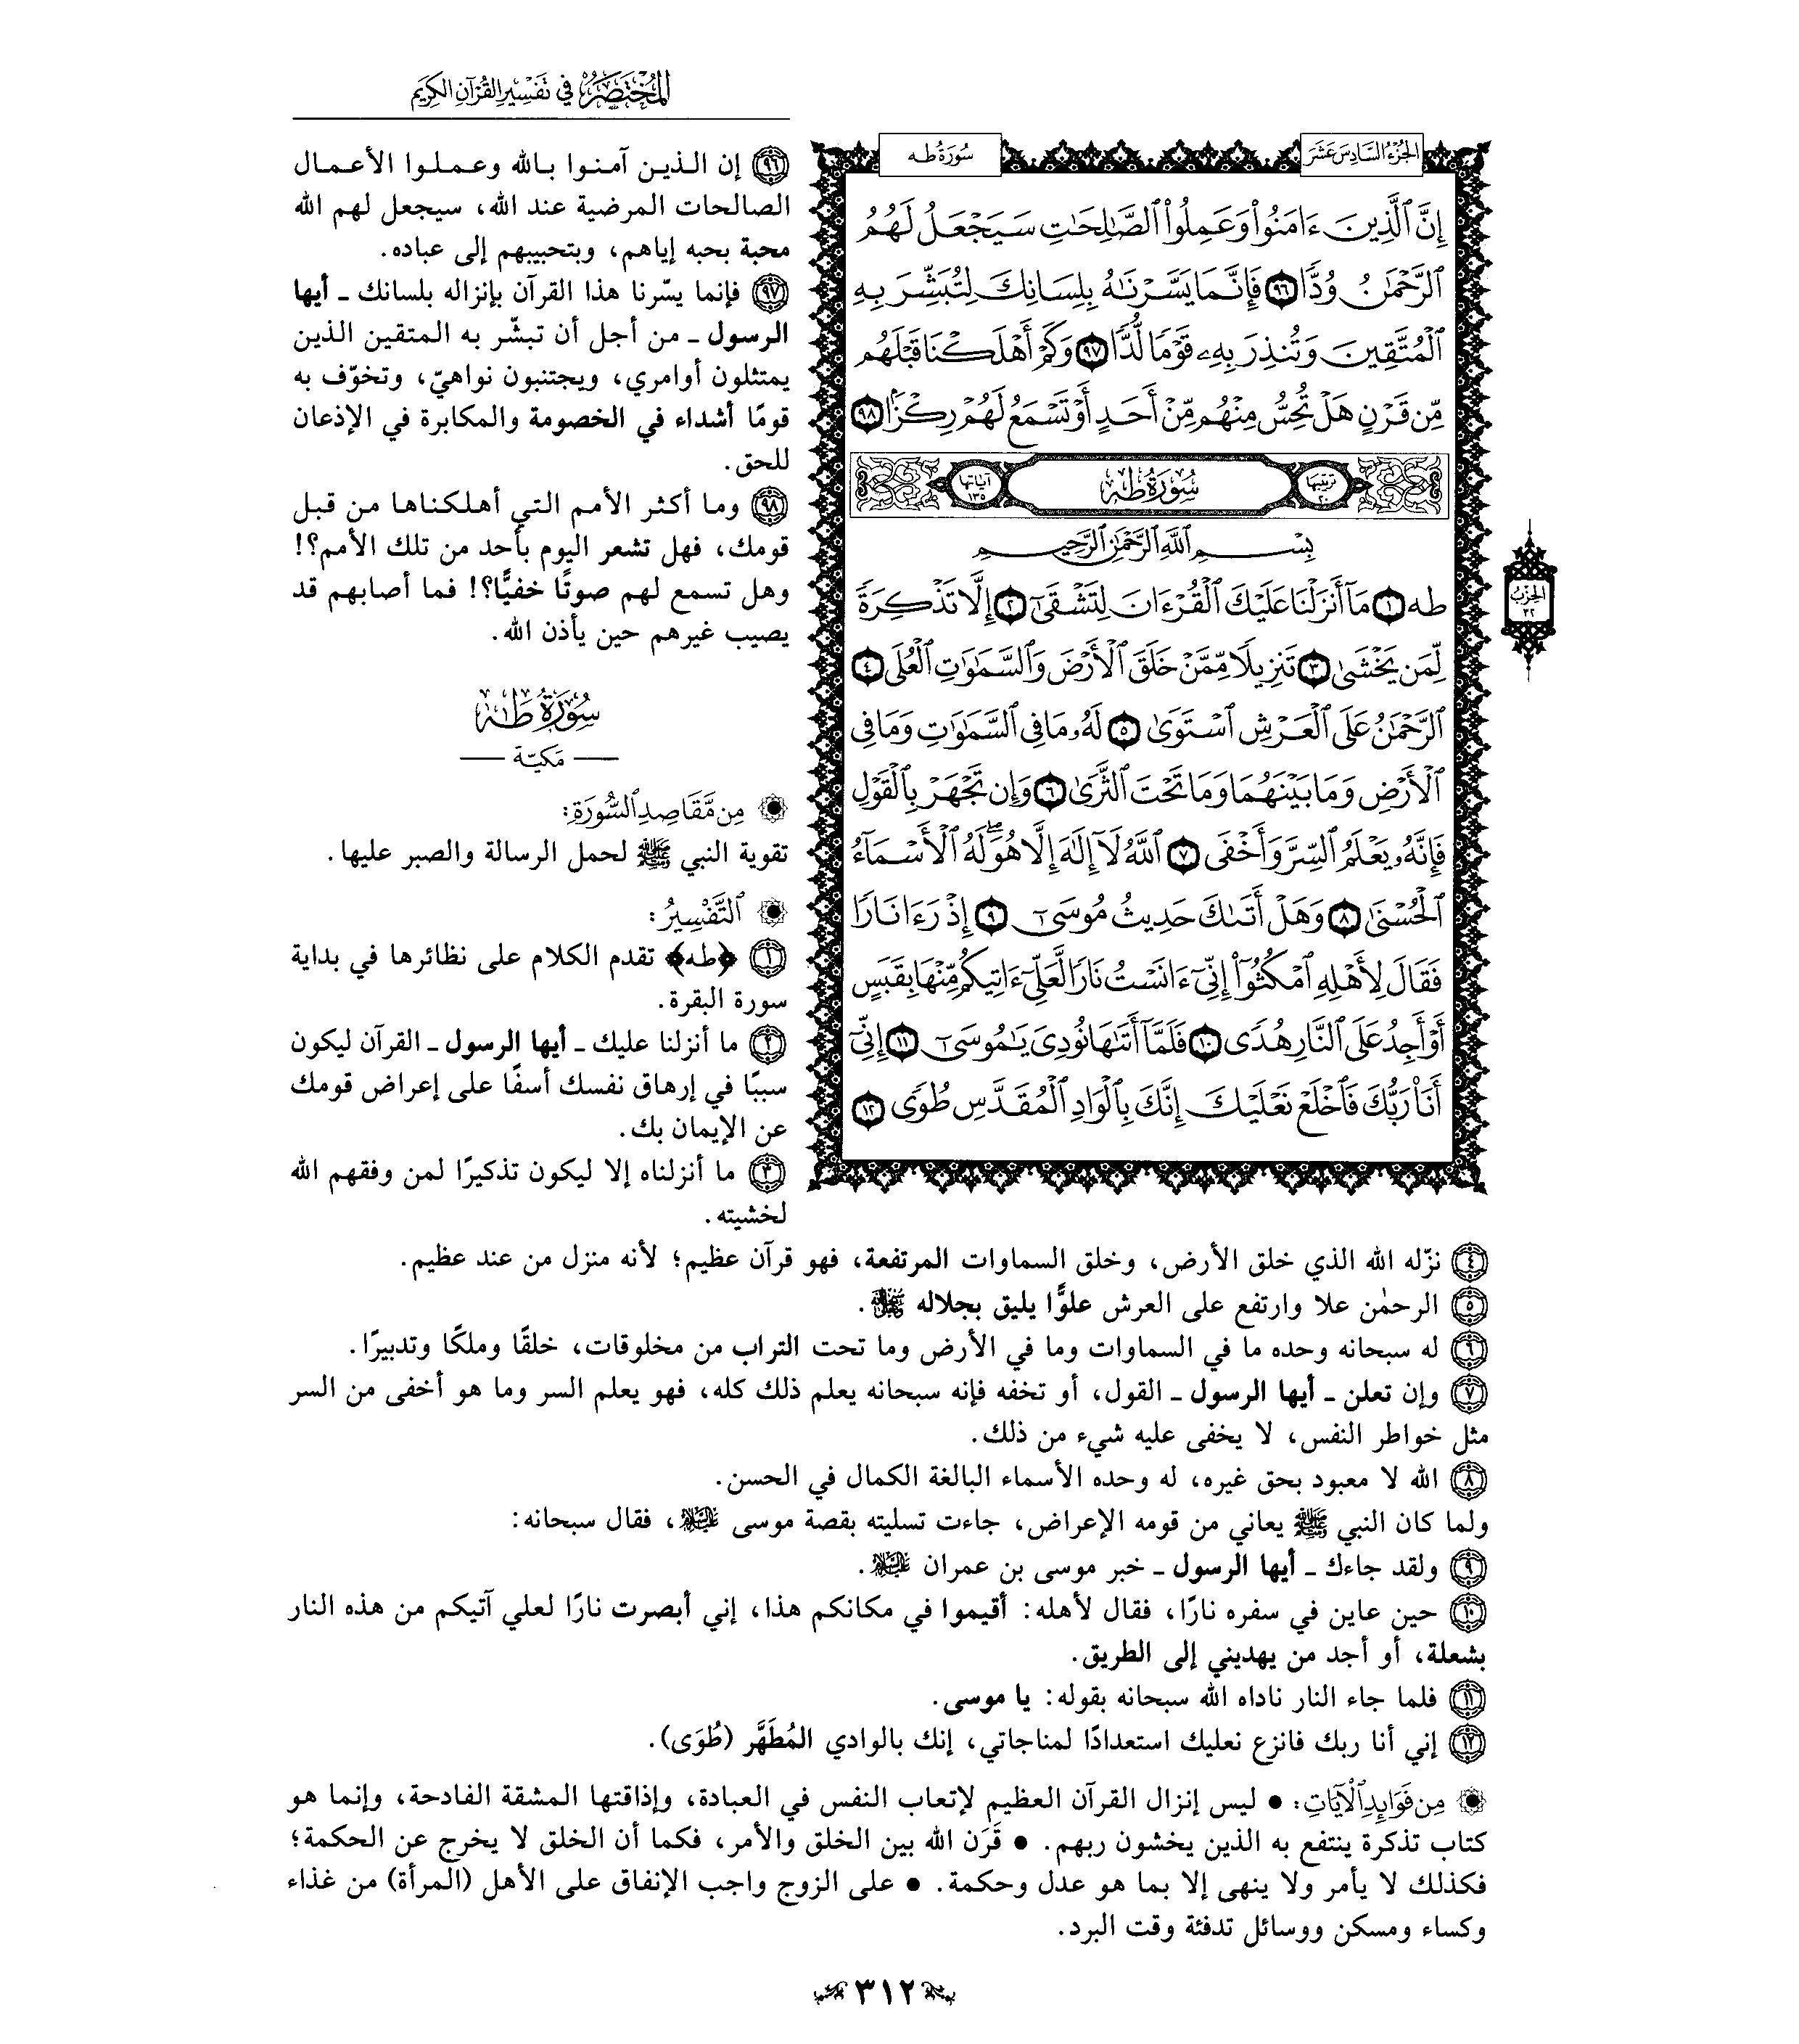 المختصر في تفسير القرآن الكريم
الجزء السادس عشر
سورة طه
إِنَّ ٱلَّذِينَ ءَامَنُواْ وَعَمِلُواْ ٱلصَّٰلِحَٰتِ سَيَجْعَلُ لَهُمُ
ٱلرَّحْمَٰنُ وُدًّا ٩٦ فَإِنَّمَا يَسَّرْنَٰهُ بِلِسَانِكَ لِتُبَشِّرَ بِهِ
ٱلْمُتَّقِينَ وَتُنذِرَ بِهِۦ قَوْمًا لُّدًّا ٩٧ وَكَمْ أَهْلَكْنَا قَبْلَهُم
مِّن قَرْنٍ هَلْ تُحِسُّ مِنْهُم مِّنْ أَحَدٍ أَوْ تَسْمَعُ لَهُمْ رِكْزًۢا ٩٨
ترتيبها ٢٠
سورة طه
آياتها ١٣٥
بِسْمِ ٱللَّهِ ٱلرَّحْمَٰنِ ٱلرَّحِيمِ
طه ١ مَآ أَنزَلْنَا عَلَيْكَ ٱلْقُرْءَانَ لِتَشْقَىٰٓ ٢ إِلَّا تَذْكِرَةً
لِّمَن يَخْشَىٰ ٣ تَنزِيلًا مِّمَّنْ خَلَقَ ٱلْأَرْضَ وَٱلسَّمَٰوَٰتِ ٱلْعُلَى ٤
ٱلرَّحْمَٰنُ عَلَى ٱلْعَرْشِ ٱسْتَوَىٰ ٥ لَهُۥ مَا فِى ٱلسَّمَٰوَٰتِ وَمَا فِى
ٱلْأَرْضِ وَمَا بَيْنَهُمَا وَمَا تَحْتَ ٱلثَّرَىٰ ٦ وَإِن تَجْهَرْ بِٱلْقَوْلِ
فَإِنَّهُۥ يَعْلَمُ ٱلسِّرَّ وَأَخْفَى ٧ ٱللَّهُ لَآ إِلَٰهَ إِلَّا هُوَۖ لَهُ ٱلْأَسْمَآءُ
ٱلْحُسْنَىٰ ٨ وَهَلْ أَتَىٰكَ حَدِيثُ مُوسَىٰٓ ٩ إِذْ رَءَا نَارًا
فَقَالَ لِأَهْلِهِ ٱمْكُثُوٓاْ إِنِّىٓ ءَانَسْتُ نَارًا لَّعَلِّىٓ ءَاتِيكُم مِّنْهَا بِقَبَسٍ
أَوْ أَجِدُ عَلَى ٱلنَّارِ هُدًى ١٠ فَلَمَّآ أَتَىٰهَا نُودِىَ يَٰمُوسَىٰٓ ١١ إِنِّىٓ
أَنَا۠ رَبُّكَ فَٱخْلَعْ نَعْلَيْكَ إِنَّكَ بِٱلْوَادِ ٱلْمُقَدَّسِ طُوًى ١٢
الحزب ٣٢
٩٦ إن الذين آمنوا بالله وعملوا الأعمال
الصالحات المرضية عند الله، سيجعل لهم الله
محبة بحبه إياهم، وبتحبيبهم إلى عباده.
٩٧ فإنما يسّرنا هذا القرآن بإنزاله بلسانك ـ أيها
الرسول ـ من أجل أن تبشّر به المتقين الذين
يمتثلون أوامري، ويجتنبون نواهيّ، وتخوّف به
قومًا أشداء في الخصومة والمكابرة في الإذعان
للحق.
٩٨ وما أكثر الأمم التي أهلكناها من قبل
قومك، فهل تشعر اليوم بأحد من تلك الأمم؟!
وهل تسمع لهم صوتًا خفيًّا؟! فما أصابهم قد
يصيب غيرهم حين يأذن الله.
سورة طه
مكية
من مقاصد السورة:
تقوية النبي ﷺ لحمل الرسالة والصبر عليها.
التفسير:
١ ﴿طه﴾ تقدم الكلام على نظائرها في بداية
سورة البقرة.
٢ ما أنزلنا عليك ـ أيها الرسول ـ القرآن ليكون
سببًا في إرهاق نفسك أسفًا على إعراض قومك
عن الإيمان بك.
٣ ما أنزلناه إلا ليكون تذكيرًا لمن وفقهم الله
لخشيته.
٤ نزّله الله الذي خلق الأرض، وخلق السماوات المرتفعة، فهو قرآن عظيم؛ لأنه منزل من عند عظيم.
٥ الرحمٰن علا وارتفع على العرش علوًّا يليق بجلاله ﷻ.
٦ له سبحانه وحده ما في السماوات وما في الأرض وما تحت التراب من مخلوقات، خلقًا وملكًا وتدبيرًا.
٧ وإن تعلن ـ أيها الرسول ـ القول، أو تخفه فإنه سبحانه يعلم ذلك كله، فهو يعلم السر وما هو أخفى من السر
مثل خواطر النفس، لا يخفى عليه شيء من ذلك.
٨ الله لا معبود بحق غيره، له وحده الأسماء البالغة الكمال في الحسن.
ولما كان النبي ﷺ يعاني من قومه الإعراض، جاءت تسليته بقصة موسى عليه السلام، فقال سبحانه:
٩ ولقد جاءك ـ أيها الرسول ـ خبر موسى بن عمران عليه السلام.
١٠ حين عاين في سفره نارًا، فقال لأهله: أقيموا في مكانكم هذا، إني أبصرت نارًا لعلي آتيكم من هذه النار
بشعلة، أو أجد من يهديني إلى الطريق.
١١ فلما جاء النار ناداه الله سبحانه بقوله: يا موسى.
١٢ إني أنا ربك فانزع نعليك استعدادًا لمناجاتي، إنك بالوادي المُطَهَّر (طُوَى).
من فوائد الآيات: • ليس إنزال القرآن العظيم لإتعاب النفس في العبادة، وإذاقتها المشقة الفادحة، وإنما هو
كتاب تذكرة ينتفع به الذين يخشون ربهم. • قَرَن الله بين الخلق والأمر، فكما أن الخلق لا يخرج عن الحكمة؛
فكذلك لا يأمر ولا ينهى إلا بما هو عدل وحكمة. • على الزوج واجب الإنفاق على الأهل (المرأة) من غذاء
وكساء ومسكن ووسائل تدفئة وقت البرد.
٣١٢